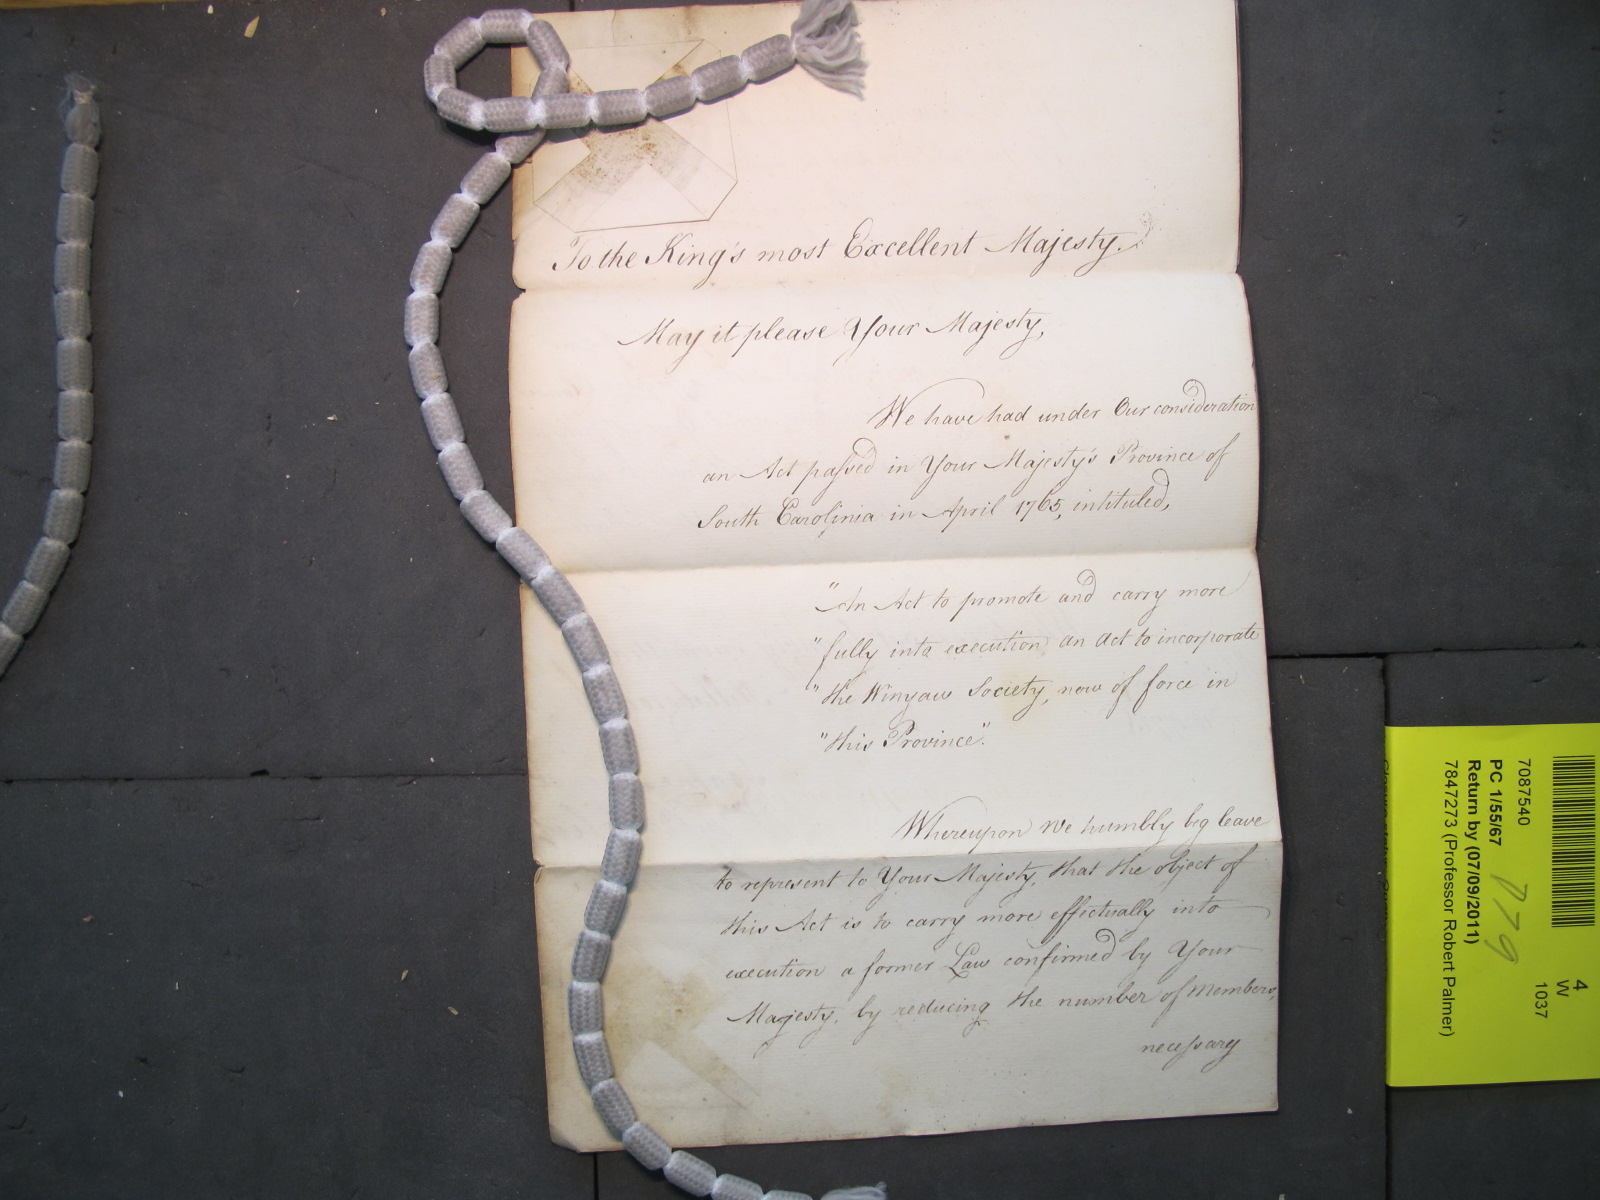 To the King's most Excellent Majesty.
May it please Your Majesty,
We have had under Our consideration
an Act passed in Your Majesty's Province of
South Carolinia in April 1765, intituled,
"An Act to promote and carry more
"fully into execution, an Act to incorporate
"the Winyaw Society, now of force in
"this Province".
Whereupon We humbly beg leave
to represent to Your Majesty, that the object of
this Act is to carry more effectually into
execution a former Law confirmed by Your
Majesty, by reducing the number of Members,
necessary
4
W
1037
7087540
PC 1/55/67
779
Return by (07/09/2011)
7847273 (Professor Robert Palmer)